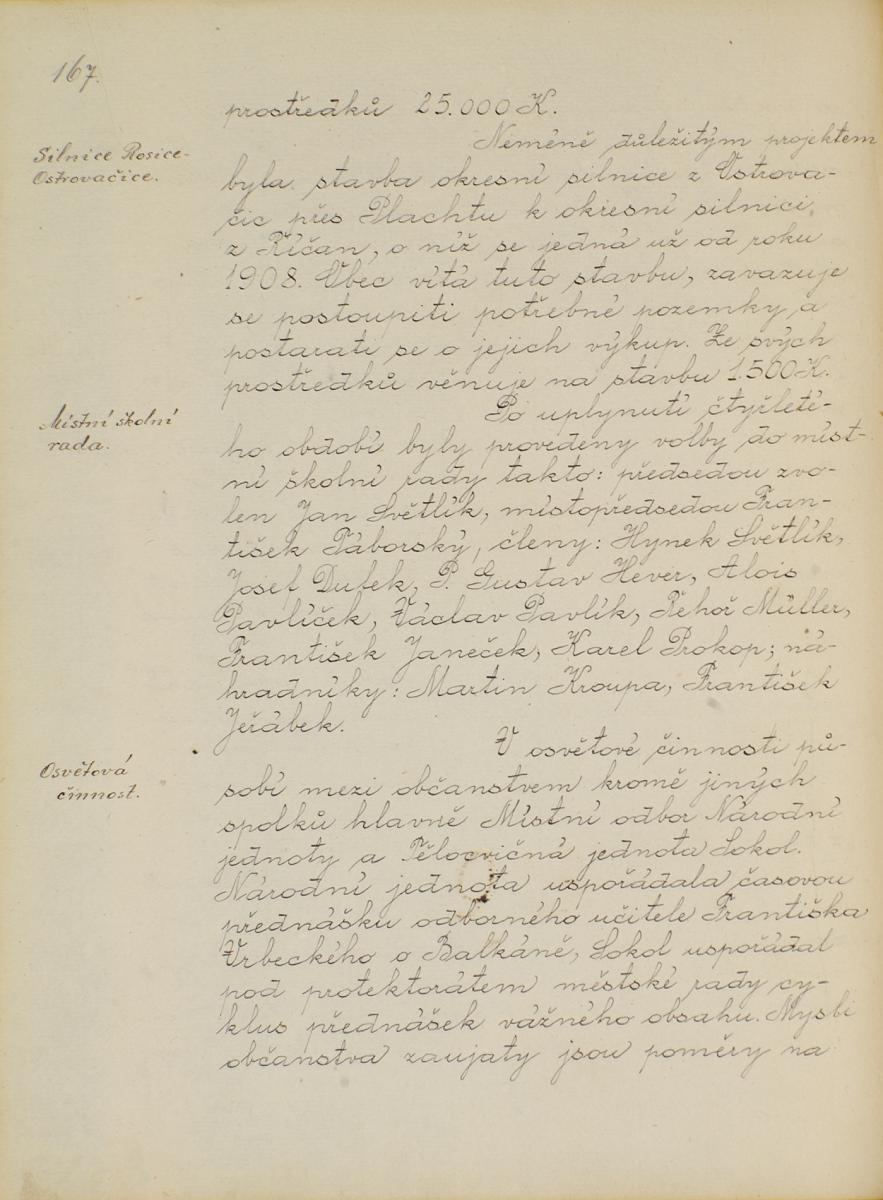 167.
prostředků 25.000 K.
Silnice Rosice-
Ostrovačice.
Neméně důležitým projektem
byla stavba okresní silnice z Ostrova-
čic přes Plachtu k okresní silnici
z Říčan, o níž se jedná už od roku
1908. Obec vítá tuto stavbu, zavazuje
se postoupiti potřebné pozemky a
postarati se o jejich výkup. Ze svých
prostředků věnuje na stavbu 1.500 K.
Místní školní
rada.
Po uplynutí čtyřleté-
ho období byly provedeny volby do míst-
ní školní rady takto: předsedou zvo-
len Jan Světlík, místopředsedou Fran-
tišek Táborský, členy: Hynek Světlík,
Josef Dufek, P. Gustav Hever, Alois
Pavlíček, Václav Pavlík, Řehoř Müller,
František Janeček, Karel Prokop; ná-
hradníky: Martin Kroupa, František
Jeřábek.
Osvětová
činnost.
V osvětové činnosti pů-
sobí mezi občanstvem kromě jiných
spolků hlavně Místní odbor Národní
jednoty a Tělocvičná jednota Sokol.
Národní jednota uspořádala časovou
přednášku odborného učitele Františka
Vrbeckého o Balkáně, Sokol uspořádal
pod protektorátem městské rady cy-
klus přednášek vážného obsahu. Mysli
občanstva zaujaty jsou poměry na